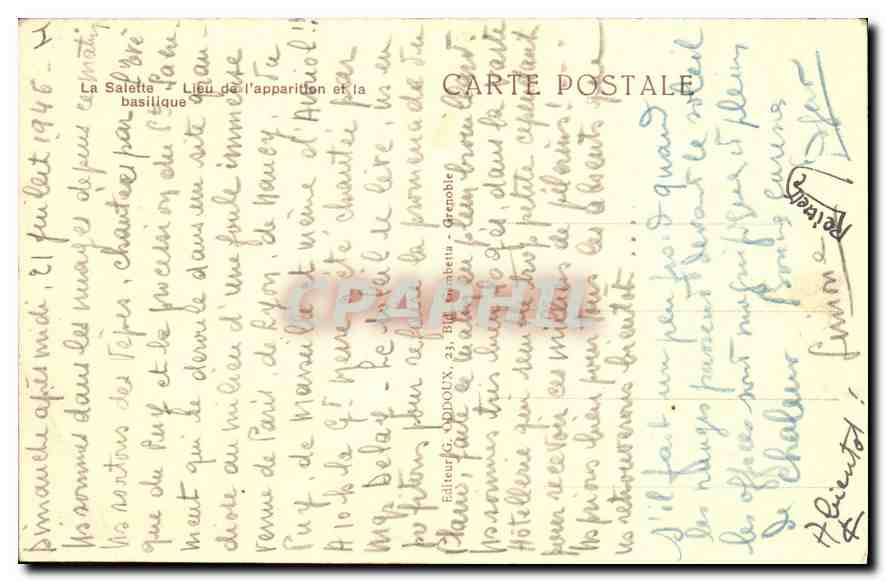 La Salette Lieu de l'apparition et la
basilique
CARTE POSTALE
Editeur G. ODDOUX, 23, Bld Gambetta - Grenoble
CPARPHIL
Dimanche après midi, 21 juillet 1946 -
Ns sommes dans les nuages depuis ce matin
Ns sortons des Vêpres, chantées par l'Evê
que du Puy et la procession du St Sacre
ment qui se déroule dans un site gran
diose au milieu d'une foule immense
venue de Paris de Lyon, de Nancy, du
Puy, de Marseille et même d'Auriol!!
A 10 h la Gd Messe a été chantée par
Mgr Delay - Le soleil se lève, ns en
profitons pour refaire la promenade du
faite ce matin en plein brouillard
Ns sommes très bien logés dans la vaste
Hôtellerie qui semble trop petite cependant
pour recevoir ces milliers de pèlerins!
Ns prions bien pour tous les absents que
ns retrouverons bientôt ....
S'il fait un peu froid quand
les nuages passent devant le soleil
les offices sont magnifiques et pleins
de chaleur Bonne
Simone
A bientôt!